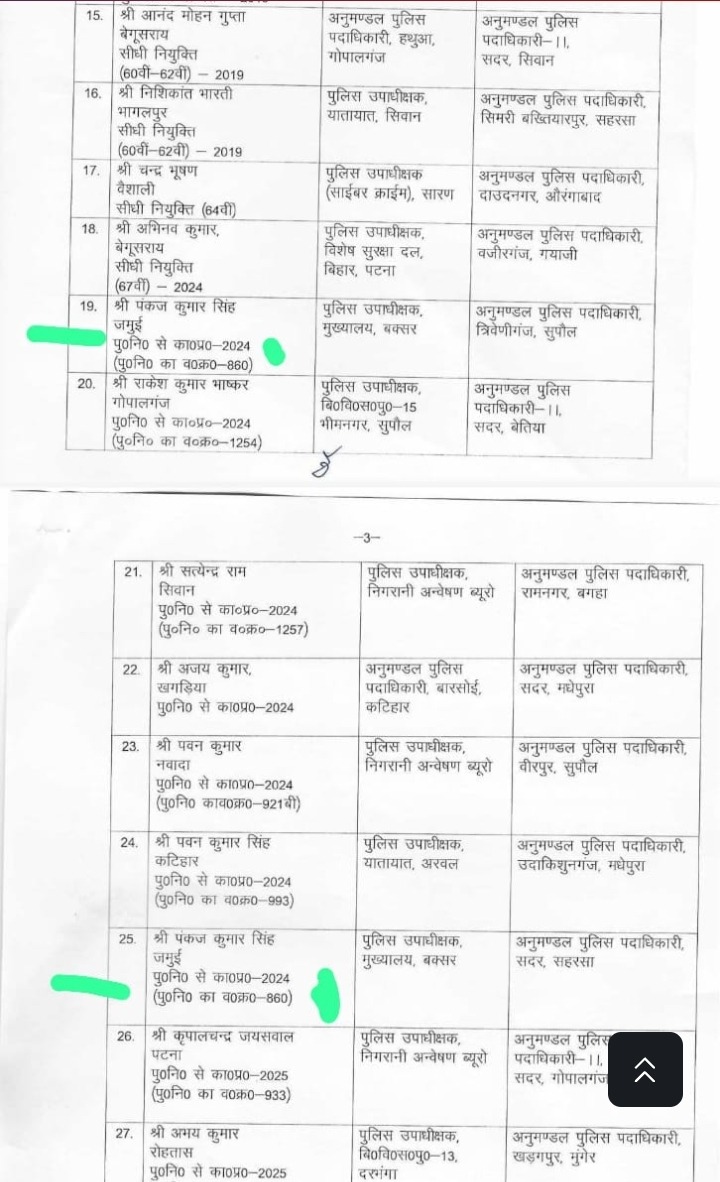 15.
श्री आनंद मोहन गुप्ता
बेगूसराय
सीधी नियुक्ति
(60वीं–62वीं) – 2019
अनुमण्डल पुलिस
पदाधिकारी, हथुआ,
गोपालगंज
अनुमण्डल पुलिस
पदाधिकारी–II,
सदर, सिवान
16.
श्री निशिकांत भारती
भागलपुर
सीधी नियुक्ति
(60वीं–62वीं) – 2019
पुलिस उपाधीक्षक,
यातायात, सिवान
अनुमण्डल पुलिस पदाधिकारी,
सिमरी बख्तियारपुर, सहरसा
17.
श्री चन्द्र भूषण
वैशाली
सीधी नियुक्ति (64वीं)
पुलिस उपाधीक्षक
(साईबर क्राईम), सारण
अनुमण्डल पुलिस पदाधिकारी,
दाउदनगर, औरंगाबाद
18.
श्री अभिनव कुमार,
बेगूसराय
सीधी नियुक्ति
(67वीं) – 2024
पुलिस उपाधीक्षक,
विशेष सुरक्षा दल,
बिहार, पटना
अनुमण्डल पुलिस पदाधिकारी,
वजीरगंज, गयाजी
19.
श्री पंकज कुमार सिंह
जमुई
पु0नि0 से का0प्र0–2024
(पु0नि0 का व0क्र0–860)
पुलिस उपाधीक्षक,
मुख्यालय, बक्सर
अनुमण्डल पुलिस पदाधिकारी,
त्रिवेणीगंज, सुपौल
20.
श्री राकेश कुमार भाष्कर
गोपालगंज
पु0नि0 से का०प्र०–2024
(पु०नि० का व०क्र०–1254)
पुलिस उपाधीक्षक,
बि0वि0स0पु0–15
भीमनगर, सुपौल
अनुमण्डल पुलिस
पदाधिकारी–II,
सदर, बेतिया
–3–
21.
श्री सत्येन्द्र राम
सिवान
पु0नि0 से का०प्र०–2024
(पु०नि० का व०क्र०–1257)
पुलिस उपाधीक्षक,
निगरानी अन्वेषण ब्यूरो
अनुमण्डल पुलिस पदाधिकारी,
रामनगर, बगहा
22.
श्री अजय कुमार,
खगड़िया
पु0नि0 से का0प्र0–2024
अनुमण्डल पुलिस
पदाधिकारी, बारसोई,
कटिहार
अनुमण्डल पुलिस पदाधिकारी,
सदर, मधेपुरा
23.
श्री पवन कुमार
नवादा
पु0नि0 से का0प्र0–2024
(पु0नि0 काव0क्र0–921बी)
पुलिस उपाधीक्षक,
निगरानी अन्वेषण ब्यूरो
अनुमण्डल पुलिस पदाधिकारी,
वीरपुर, सुपौल
24.
श्री पवन कुमार सिंह
कटिहार
पु0नि0 से का0प्र0–2024
(पु0नि0 का व0क्र0–993)
पुलिस उपाधीक्षक,
यातायात, अरवल
अनुमण्डल पुलिस पदाधिकारी,
उदाकिशुनगंज, मधेपुरा
25.
श्री पंकज कुमार सिंह
जमुई
पु0नि0 से का0प्र0–2024
(पु0नि0 का व0क्र0–860)
पुलिस उपाधीक्षक,
मुख्यालय, बक्सर
अनुमण्डल पुलिस पदाधिकारी,
सदर, सहरसा
26.
श्री कृपालचन्द्र जयसवाल
पटना
पु0नि0 से का0प्र0–2025
(पु0नि0 का व0क्र0–933)
पुलिस उपाधीक्षक,
निगरानी अन्वेषण ब्यूरो
अनुमण्डल पुलिस
पदाधिकारी–II,
सदर, गोपालगंज
27.
श्री अभय कुमार
रोहतास
पु0नि0 से का0प्र0–2025
पुलिस उपाधीक्षक,
बि0वि0स0पु0–13,
दरभंगा
अनुमण्डल पुलिस पदाधिकारी,
खड़गपुर, मुंगेर